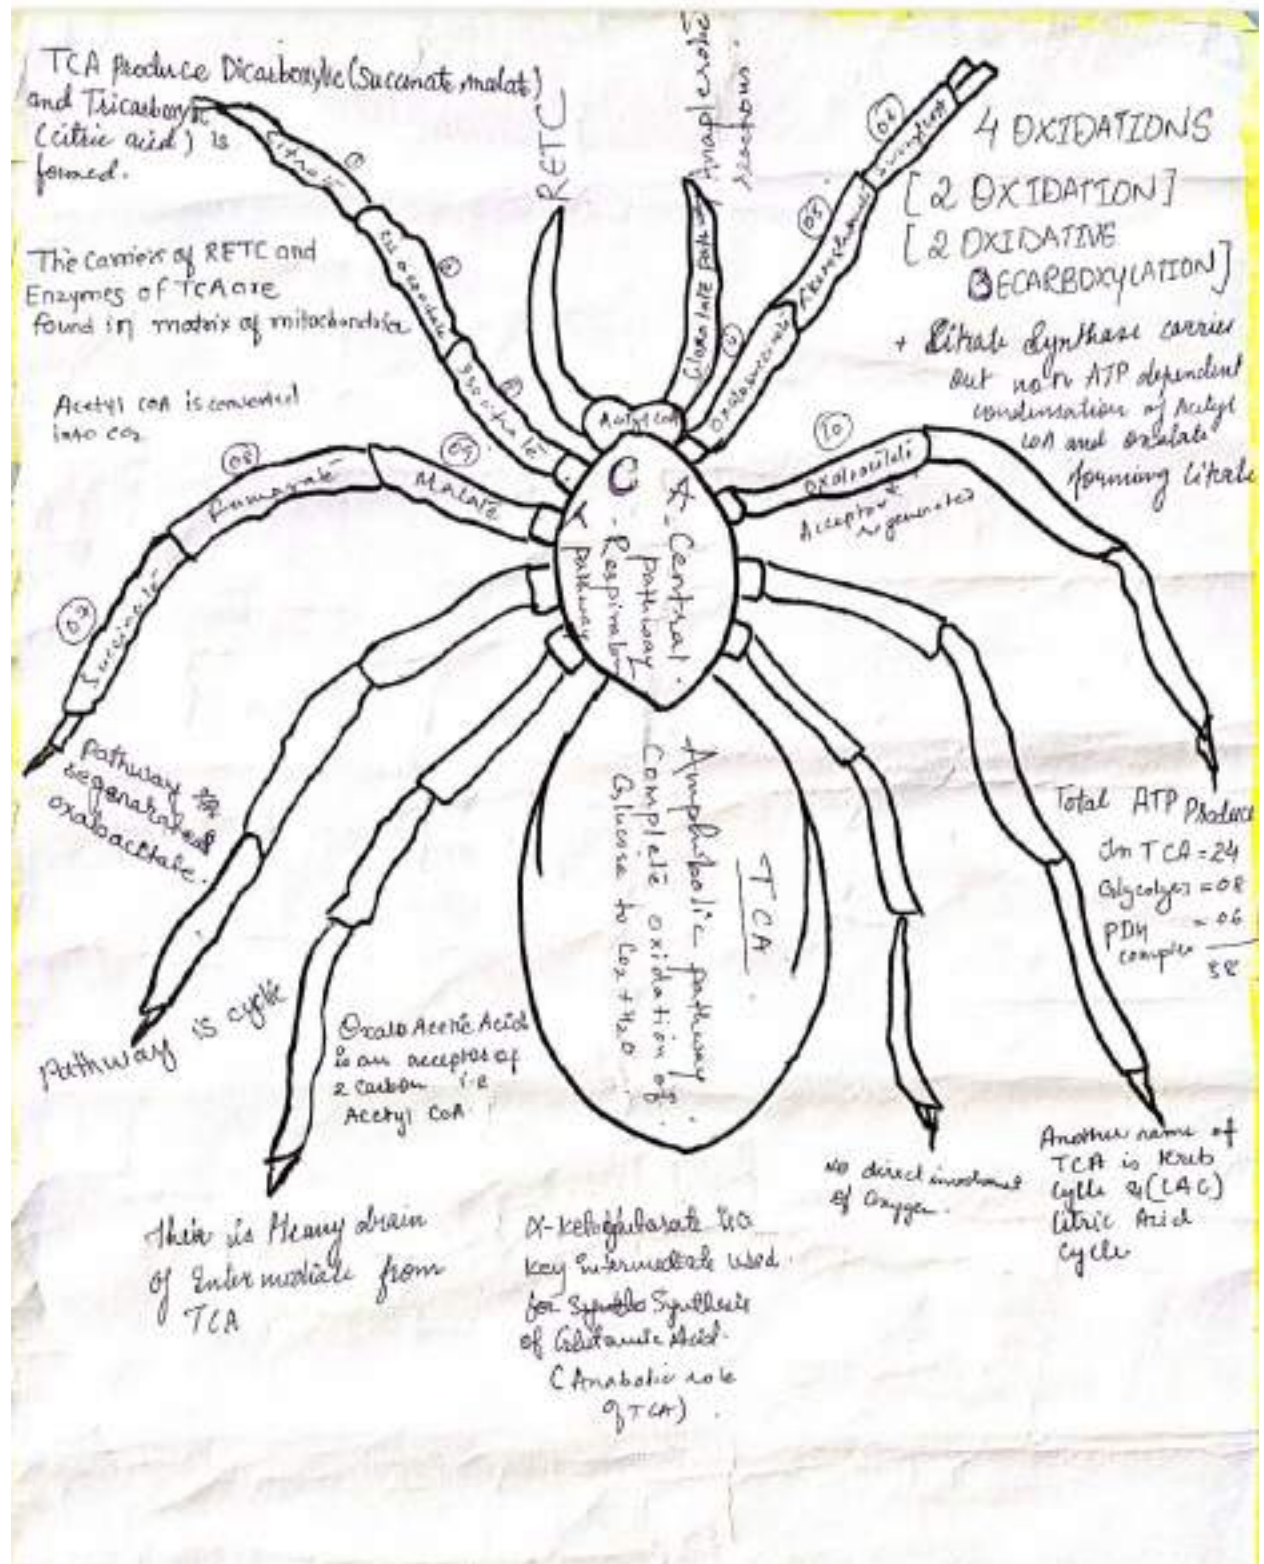 TCA Produce Dicarboxylic (Succinate, malat)
and Tricarboxylic
(citric acid) is
formed.
The carriers of RETC and
Enzymes of TCA are
found in matrix of mitochondria
Acetyl COA is converted
into CO2
RETC
Anaplerotic
reactions.
4 OXIDATIONS
[2 OXIDATION]
[2 OXIDATIVE
DECARBOXYLATION]
+ Citrate Synthase carries
out non ATP dependent
condensation of Acetyl
COA and oxalate
forming Citrate
Citrate
①
Cis aconitate
②
Isocitrate
Acetyl COA
05
06
08
Fumarate
09
Malate
07
Succinate
10
Oxaloacetate
Acceptor
regenerated
C
Central
pathway
Respiration
pathway
TCA
Amphibolic pathway.
Complete oxidation of
Glucose to CO2 + H2O
Pathway
regenerated
oxaloacetate.
Pathway is cyclic
Oxalo Acetic Acid
is an acceptor of
2 Carbon i.e
Acetyl CoA.
Total ATP Produce
In TCA = 24
Glycolyses = 08
PDH = 06
complex
38
No direct
of Oxygen.
Another name of
TCA is Kreb
Cycle & (CAC)
Citric Acid
Cycle
This is Heavy drain
of Intermediate from
TCA
α-Ketoglutarate is a
key intermediate used.
for Synthesis
of Glutamic Acid.
(Anabolic role
of TCA).